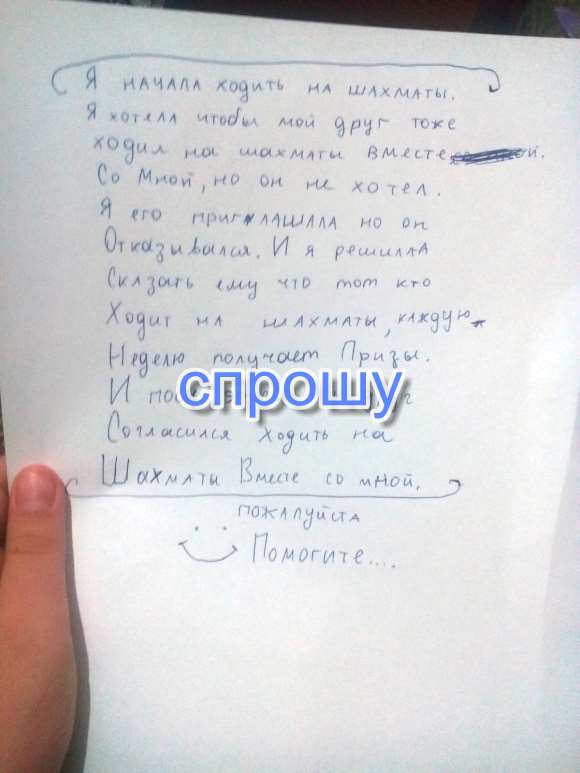 Я НАЧАЛА ХОДИТЬ НА ШАХМАТЫ.
Я ХОТЕЛА ЧТОБЫ МОЙ ДРУГ ТОЖЕ
ХОДИЛ НА ШАХМАТЫ ВМЕСТЕ ой.
Со Мной, но он не хотел.
Я его приглашала но он
Отказывался. И я решилла
Сказать ему что тот кто
Ходит на шахматы, каждую
Неделю получает Призы.
И
спрошу
Согласился ходить на
Шахматы Вместе со мной.
пожалуйста
Помогите....